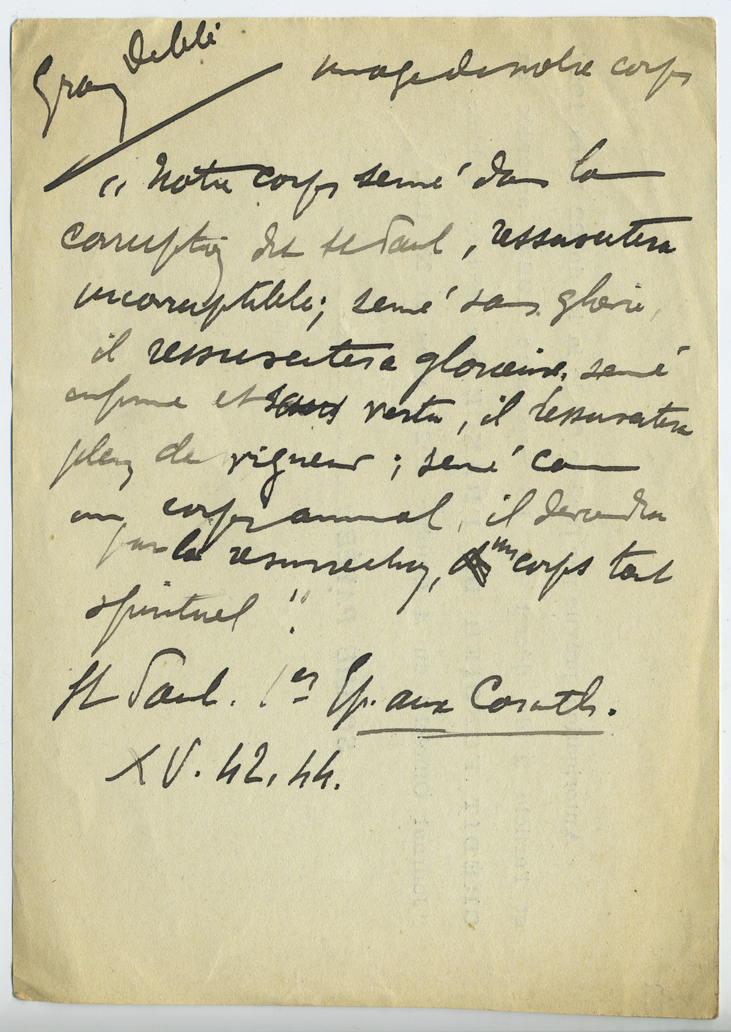 image de notre corps
« Notre corps semé dans la
corruption dit St Paul, ressuscitera
incorruptible; semé sans gloire,
il ressuscitera glorieux, semé
infirme et sans vertu, il ressuscitera
plein de vigueur; semé com
un corps animal, il deviendra
par la resurrection, un corps tout
spirituel "
St Paul. 1er Ep. aux Corinth.
XV. 42. 44.